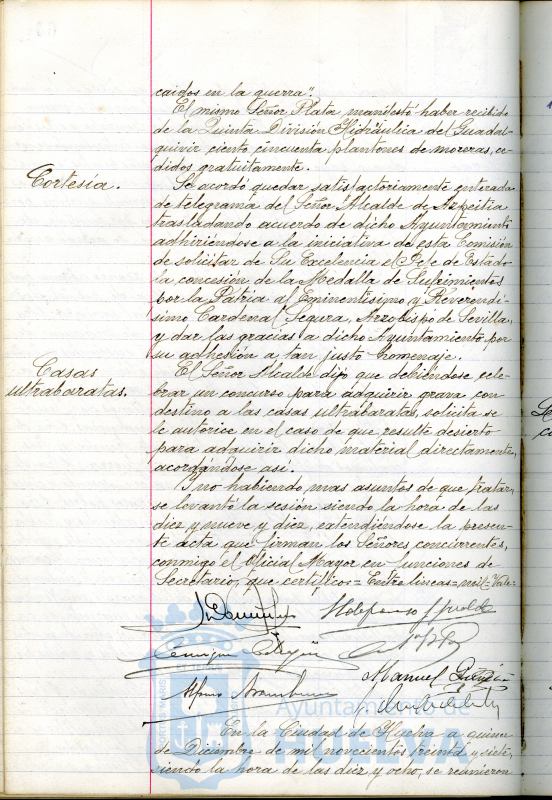 caidos en la guerra".
El mismo Señor Plata manifestó haber recibido
de la Quinta División Hidráulica del Guadal-
quivir ciento cincuenta plantones de moreras, ce-
didos gratuitamente.
Cortesía.
Se acordó quedar satisfactoriamente enterada
de telegrama del Señor Alcalde de Azpeitia
trasladando acuerdo de dicho Ayuntamiento
adhiriéndose a la iniciativa de esta Comisión
de solicitar de Su Excelencia el Jefe de Estado
la concesión de la Medalla de Sufrimientos
por la Patria al Eminentísimo y Reverendí-
simo Cardenal Segura, Arzobispo de Sevilla,
y dar las gracias a dicho Ayuntamiento por
su adhesión a tan justo homenaje.
Casas
ultrabaratas.
El Señor Alcalde dijo que debiéndose cele-
brar un concurso para adquirir grava con
destino a las casas ultrabaratas, solicita se
le autorice en el caso de que resulte desierto
para adquirir dicho material directamente,
acordándose así.
Y no habiendo mas asuntos de que tratar,
se levantó la sesión siendo la hora de las
diez y nueve y diez, extendiéndose la presen-
te acta que firman los Señores concurrentes,
conmigo el Oficial Mayor en funciones de
Secretario, que certifico= Entre lineas=mil=Vale=
Ildefonso
Enrique
Manuel
Alfonso Aramburu
Ayuntamiento de
HUELVA
En la Ciudad de Huelva a quince
de Diciembre de mil novecientos treinta y siete,
siendo la hora de las diez y ocho, se reunieron